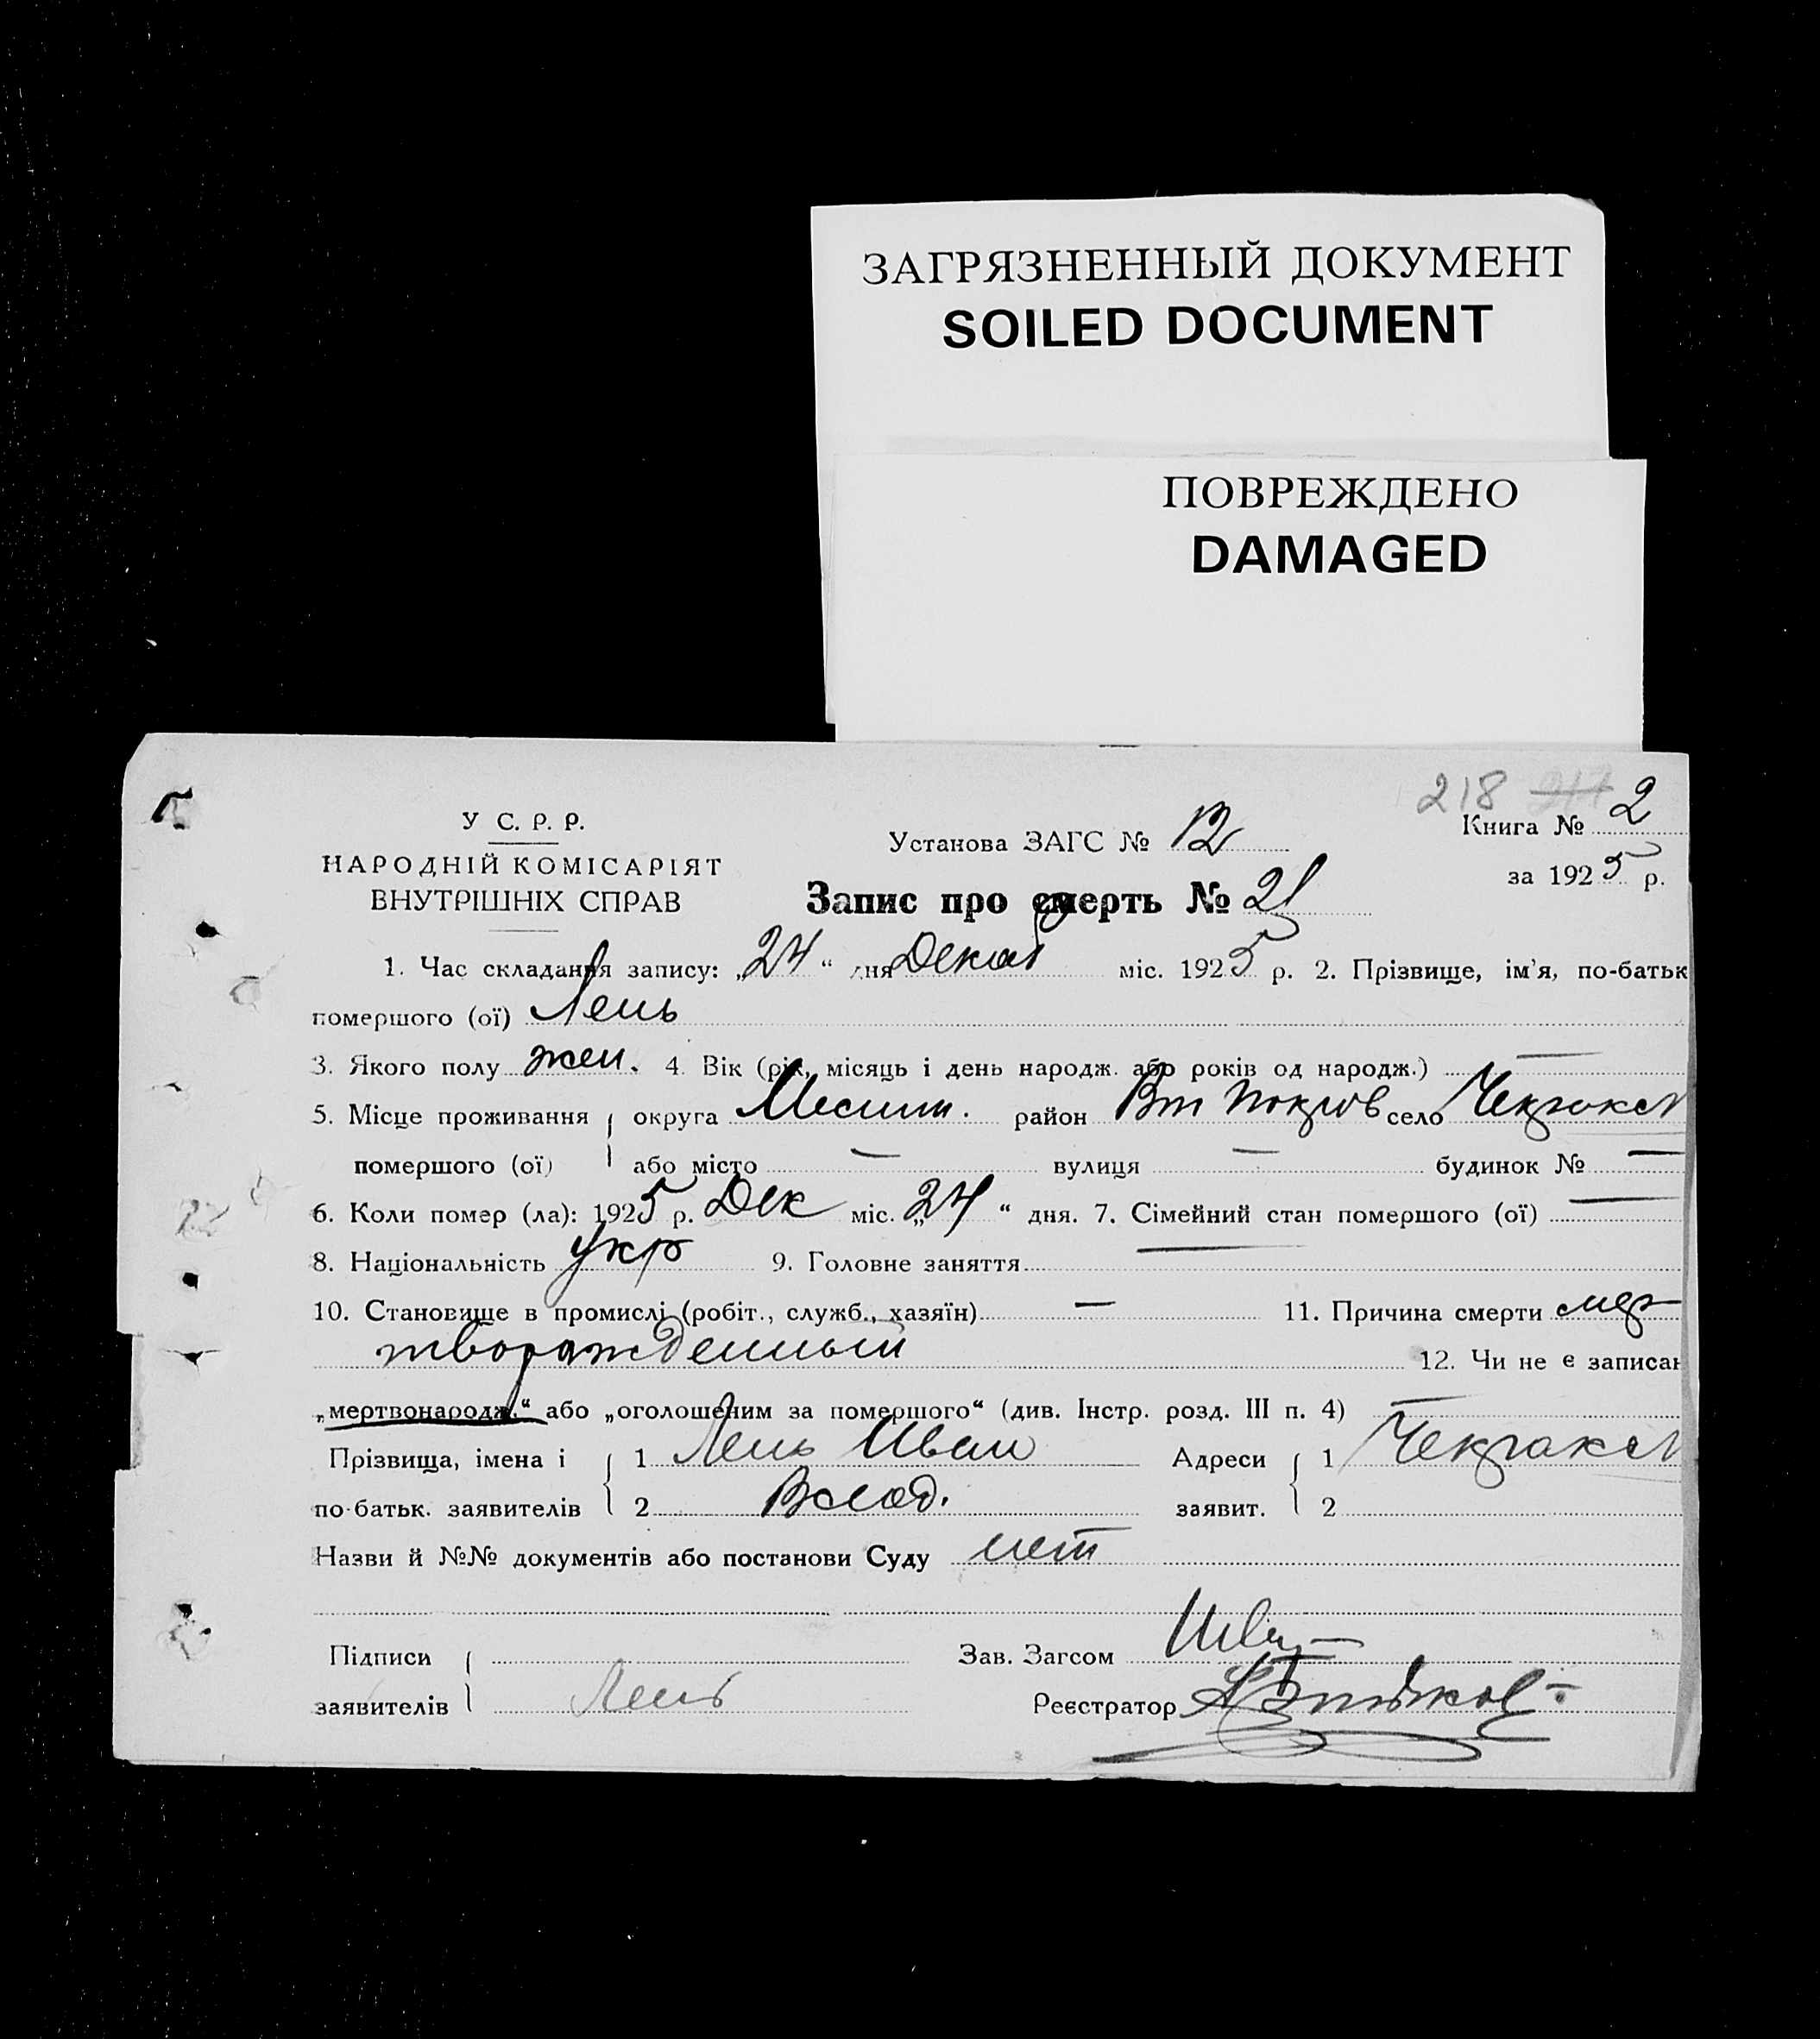 ЗАГРЯЗНЕННЫЙ ДОКУМЕНТ
SOILED DOCUMENT
ПОВРЕЖДЕНО
DAMAGED
218 2
У С. Р. Р.
НАРОДНІЙ КОМІСАРІЯТ
ВНУТРІШНІХ СПРАВ
Установа ЗАГС № 12
Книга № 2
за 1925 р.
Запис про смерть № 21
1. Час складання запису: „24“ дня Декаб міс. 1925 р. 2. Прізвище, ім’я, по-батьк
помершого (ої) Лень
3. Якого полу жен. 4. Вік (рік, місяць і день народж. або років од народж.) —
5. Місце проживання округа район Вт Покров село
помершого (ої) або місто — вулиця — будинок № —
6. Коли помер (ла): 1925 р. Дек міс. „24“ дня. 7. Сімейний стан помершого (ої) —
8. Національність укр 9. Головне заняття —
10. Становище в промислі (робіт., служб., хазяїн) — 11. Причина смерти мер-
творожденный 12. Чи не є записан
„мертвонародж.“ або „оголошеним за помершого“ (див. Інстр. розд. III п. 4) —
Прізвища, імена і 1 Лень Иван Адреси 1
по-батьк. заявителів 2 Влад. заявит. 2
Назви й №№ документів або постанови Суду нет
Підписи Зав. Загсом
заявителів Лень Реєстратор